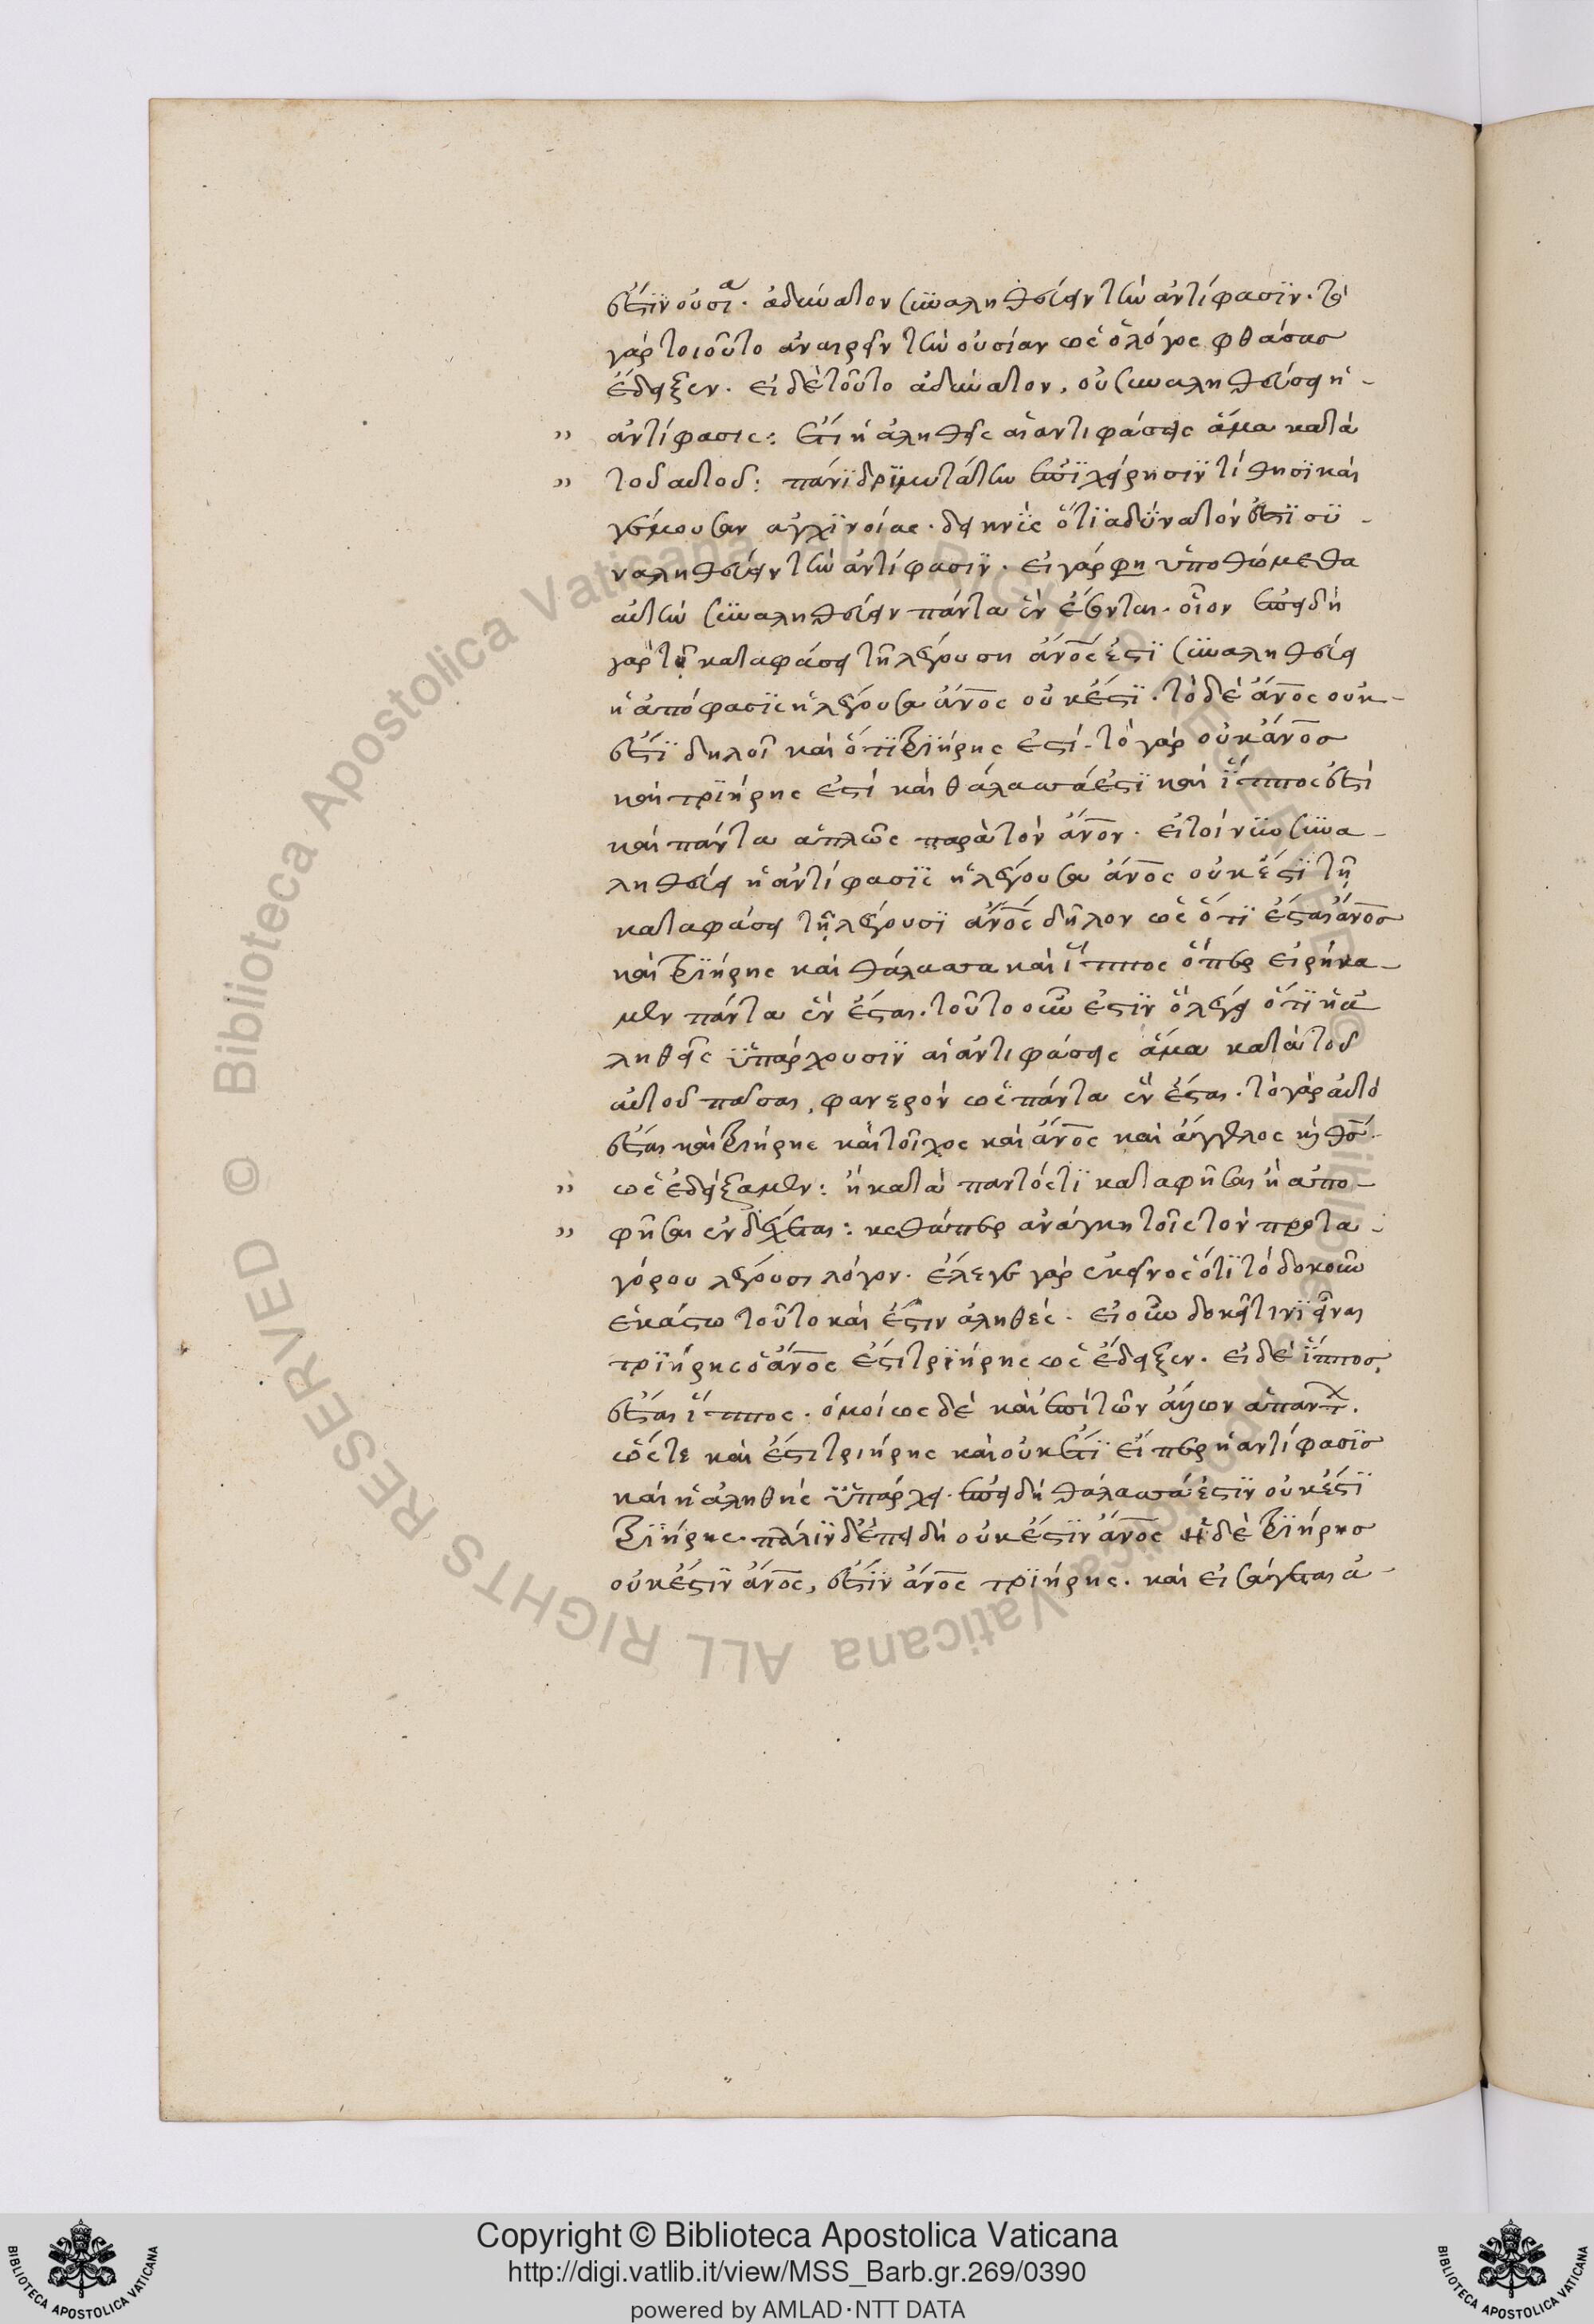 ἔστιν οὐσία. ἀδύνατον συναληθεύειν τὴν ἀντίφασιν. τὸ
γὰρ τοιοῦτο ἀναιρεῖν τὴν οὐσίαν ὡς ὁ λόγος φθάσας
ἔδειξεν. εἰ δὲ τοῦτο ἀδύνατον, οὐ συναληθεύσει ἡ
ἀντίφασις: ἔτι εἰ ἀληθεῖς αἱ ἀντιφάσεις ἅμα κατὰ
τοῦ αὐτοῦ: πάνυ δριμυτάτην ἐπιχείρησιν τίθησι καὶ
γέμουσαν ἀγχινοίας. δεικνὺς ὅτι ἀδύνατόν ἐστι συ-
ναληθεύειν τὴν ἀντίφασιν. εἰ γάρ φη ὑποθώμεθα
αὐτὴν συναληθεύειν πάντα ἓν ἔσονται. οἷον ἐπειδὴ
γὰρ τῇ καταφάσει τῇ λεγούσῃ ἄνος ἐστὶ συναληθεύει
ἡ ἀπόφασις ἡ λέγουσα ἄνος οὐκ ἔστι. τὸ δὲ ἄνος οὐκ
ἔστι δηλοῖ καὶ ὅτι τριήρης ἐστί. τὸ γὰρ οὐκ ἄνος
καὶ τριήρης ἐστὶ καὶ θάλασσά ἐστι καὶ ἵππος ἐστὶ
καὶ πάντα ἁπλῶς παρὰ τὸν ἄνον. εἰ τοίνυν συνα-
ληθεύει ἡ ἀντίφασις ἡ λέγουσα ἄνος οὐκ ἔστι τῇ
καταφάσει τῇ λεγούσῃ ἄνος δῆλον ὡς ὅτι ἔσται ἄνος
καὶ τριήρης καὶ θάλασσα καὶ ἵππος ὅπερ εἰρήκα-
μεν πάντα ἓν ἔσται. τοῦτο οὖν ἐστὶν ὃ λέγει ὅτι εἰ ἀ-
ληθεῖς ὑπάρχουσιν αἱ ἀντιφάσεις ἅμα κατὰ τοῦ
αὐτοῦ πᾶσαι, φανερὸν ὡς πάντα ἓν ἔσται. τὸ γὰρ αὐτὸ
ἔσται καὶ τριήρης καὶ τοῖχος καὶ ἄνος καὶ ἄγγελος καὶ θσ.
ὡς ἐδείξαμεν: εἰ κατὰ παντός τι καταφῆσαι ἢ ἀπο-
φῆσαι ἐνδέχεται: καθάπερ ἀνάγκη τοῖς τὸν πρωτα-
γόρου λέγουσι λόγον. ἔλεγε γὰρ ἐκεῖνος ὅτι τὸ δοκοῦν
ἑκάστω τοῦτο καὶ ἔστιν ἀληθές. εἰ οὖν δοκεῖ τινὶ εἶναι
τριήρης ὁ ἄνος ἔστι τριήρης ὡς ἔδειξεν. εἰ δὲ ἵππος,
ἔσται ἵππος. ὁμοίως δὲ καὶ ἐπὶ τῶν ἄλλων ἁπάντων.
ὥστε καὶ ἔστι τριήρης καὶ οὐκ ἔστι εἴπερ ἡ ἀντίφασις
καὶ ἡ ἀληθὴς ὑπάρχει. ἐπειδὴ θάλασσά ἐστιν οὐκ ἔστι
τριήρης. πάλιν δὲ ἐπειδὴ οὐκ ἔστιν ἄνος ἡ δὲ τριήρης
οὐκ ἔστιν ἄνος, ἔστιν ἄνος τριήρης. καὶ εἰσάγεται ἀ-
Copyright © Biblioteca Apostolica Vaticana
http://digi.vatlib.it/view/MSS_Barb.gr.269/0390
powered by AMLAD·NTT DATA